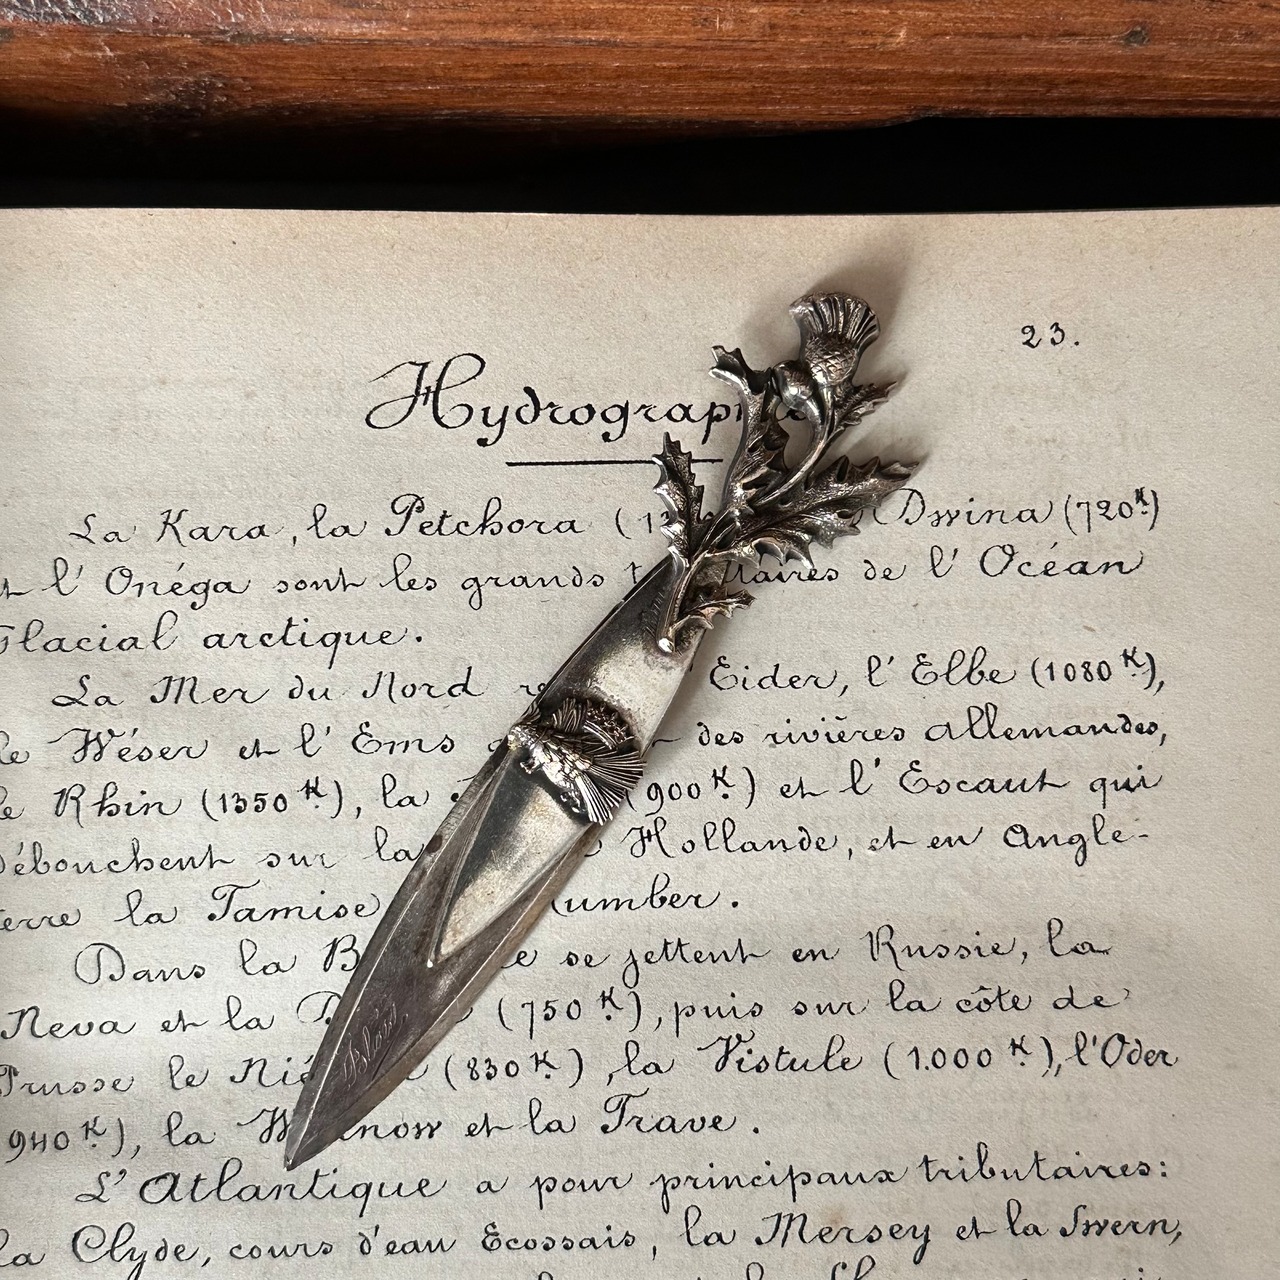 23.
Hydrograp
La Kara, la Petchora (13 Dwina (720K)
et l'Onéga sont les grands t taires de l'Océan
Glacial arctique.
La Mer du Nord re Eider, l'Elbe (1080K),
le Wéser et l'Ems des rivières allemandes,
le Rhin (1350K), la (900K) et l'Escaut qui
débouchent sur la Hollande, et en Angle-
terre la Tamise umber.
Dans la B e se jettent en Russie, la
Neva et la D (750K), puis sur la côte de
Prusse le Nié (830K), la Vistule (1.000K), l'Oder
940K), la W now et la Trave.
L'Atlantique a pour principaux tributaires:
la Clyde, cours d'eau Ecossais, la Mersey et la Swern,
Blois